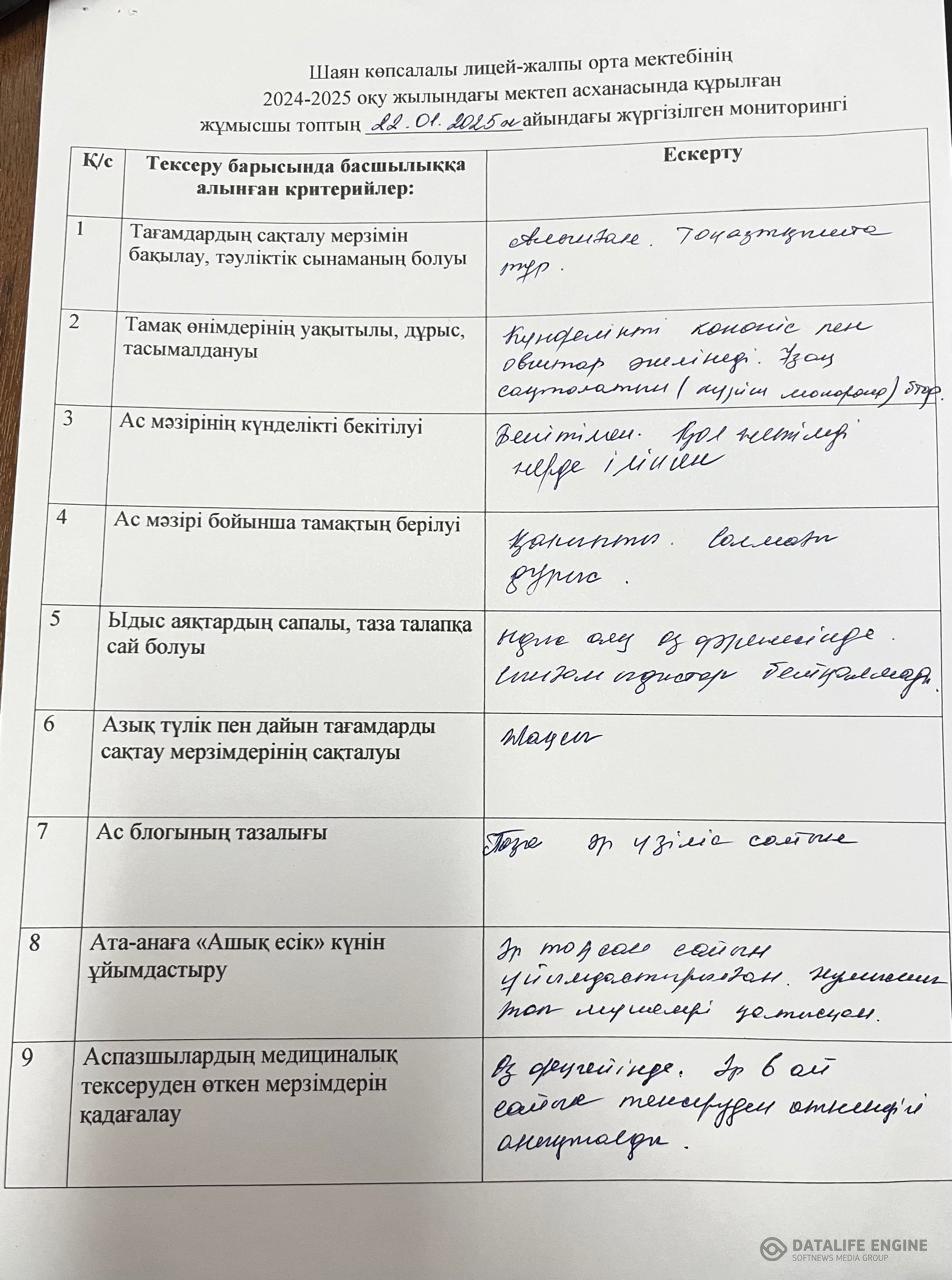 Шаян көпсалалы лицей-жалпы орта мектебінің
2024-2025 оқу жылындағы мектеп асханасында құрылған
жұмысшы топтың 22.01.2025ж айындағы жүргізілген мониторингі
Қ/с
Тексеру барысында басшылыққа
алынған критерийлер:
Ескерту
1
Тағамдардың сақталу мерзімін
бақылау, тәуліктік сынаманың болуы
Алынған. Тоңазытқышта
тұр.
2
Тамақ өнімдерінің уақытылы, дұрыс,
тасымалдануы
Күнделікті көкөніс пен
әкелінеді. Ұзақ
сақталатын (күріш макарон)
3
Ас мәзірінің күнделікті бекітілуі
Бекітілген. Қол жетімді
жерде ілінген
4
Ас мәзірі бойынша тамақтың берілуі
Қанықты. Салмағы
дұрыс.
5
Ыдыс аяқтардың сапалы, таза талапқа
сай болуы
Ыдыс аяқ өз дәрежесінде.
Сынған ыдыстар байқалмады.
6
Азық түлік пен дайын тағамдарды
сақтау мерзімдерінің сақталуы
Жақсы
7
Ас блогының тазалығы
Таза әр үзіліс сайын
8
Ата-анаға «Ашық есік» күнін
ұйымдастыру
Әр тоқсан сайын
ұйымдастырылған. Жұмысшы
топ мүшелері қатысқан.
9
Аспазшылардың медициналық
тексеруден өткен мерзімдерін
қадағалау
Өз деңгейінде. Әр 6 ай
сайын тексеруден өткендігі
анықталды.
DATALIFE ENGINE
SOFTNEWS MEDIA GROUP